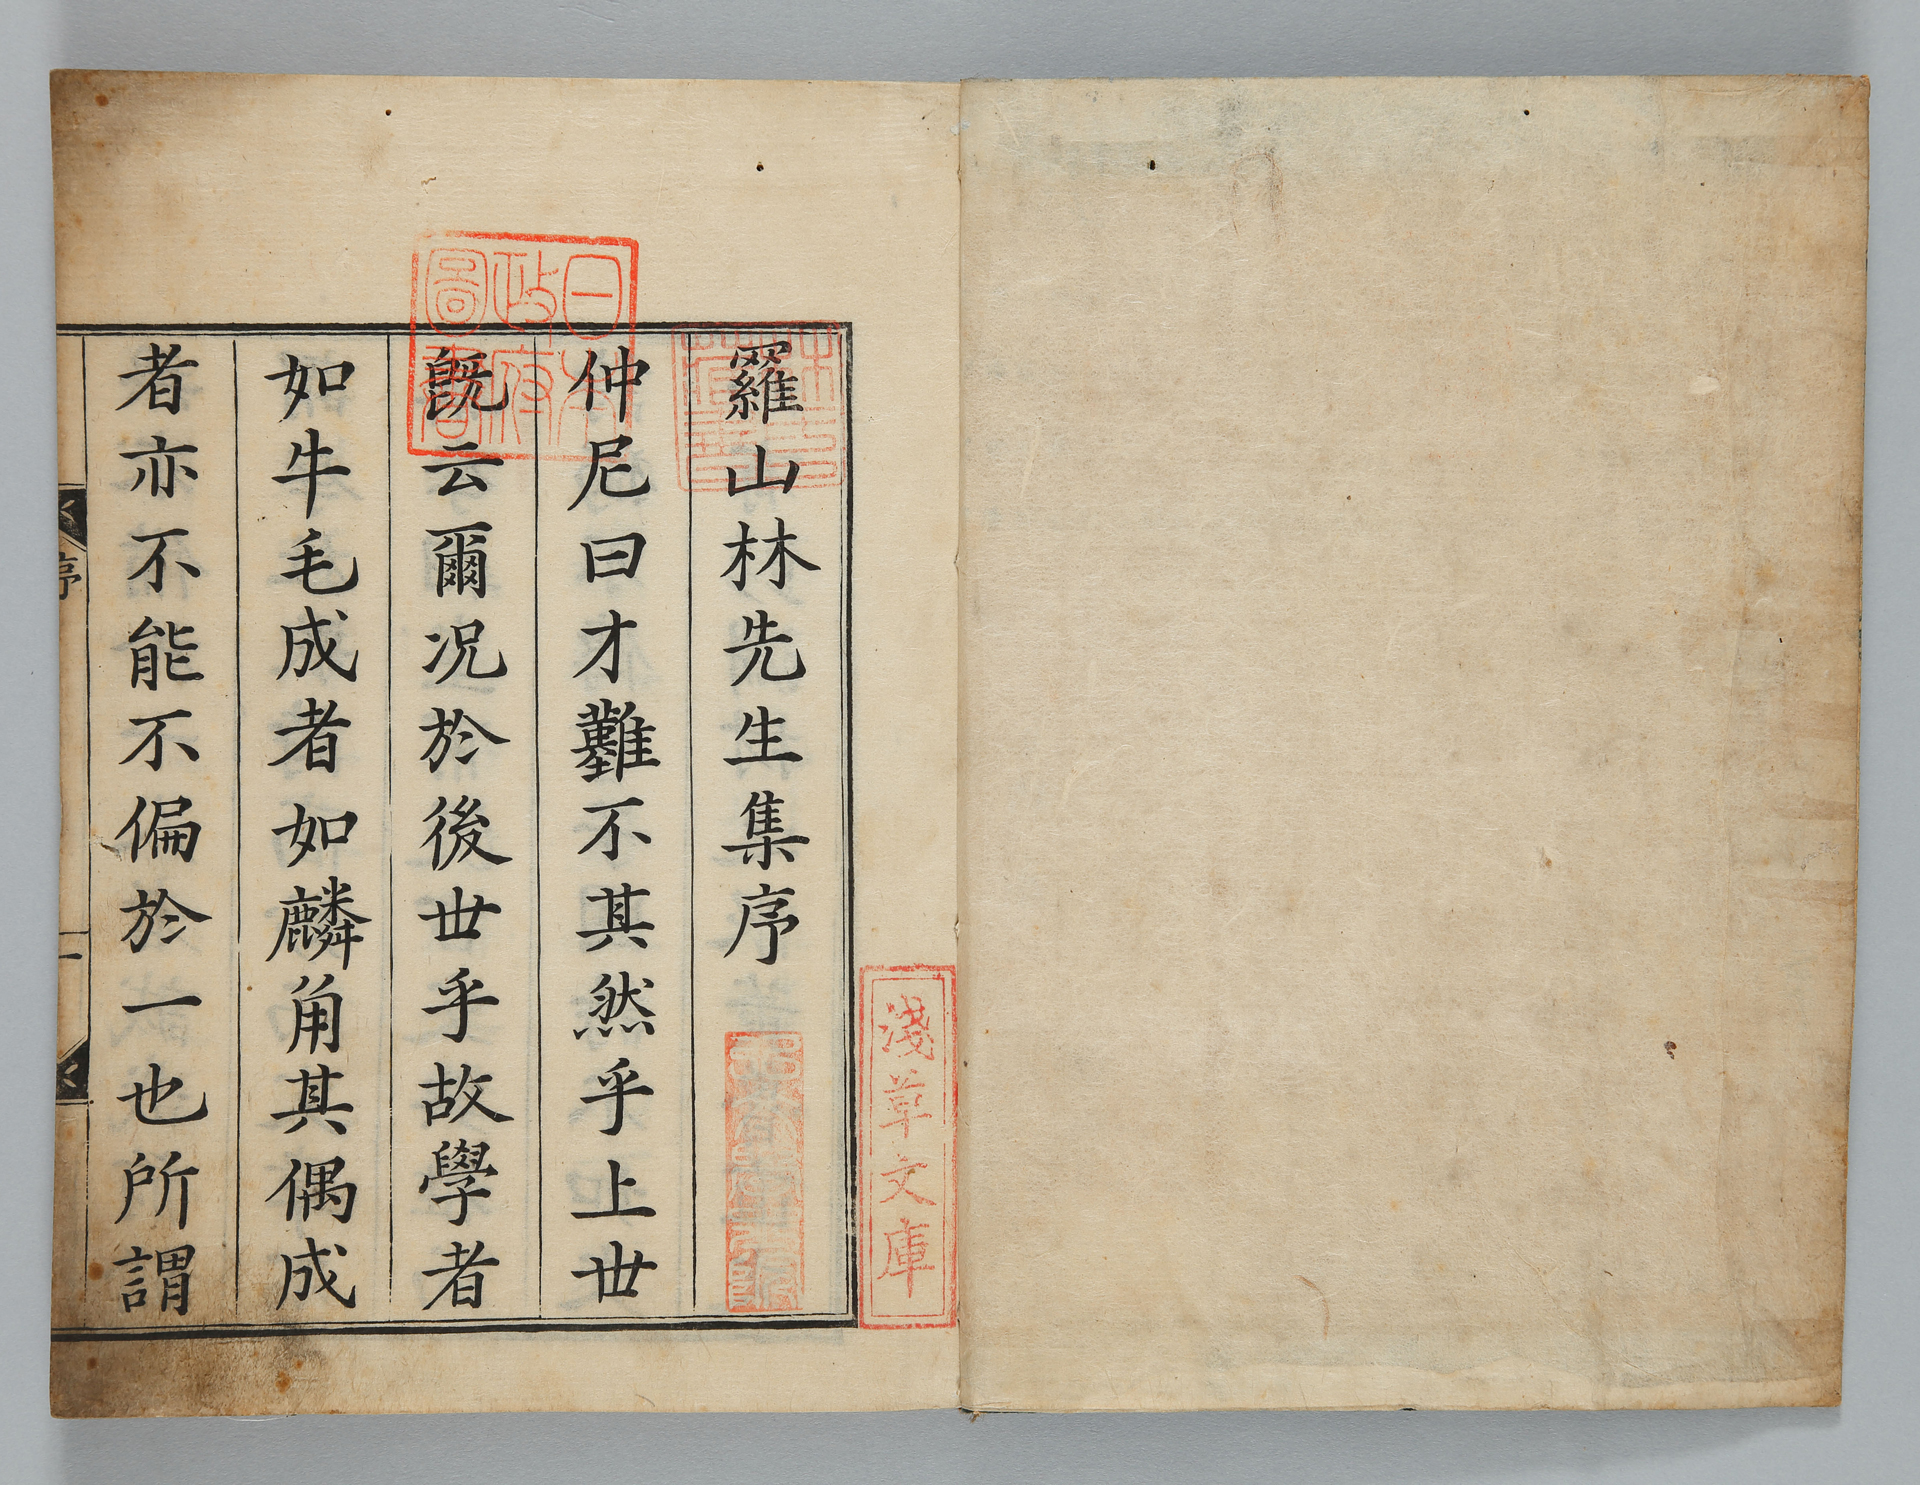 羅山林先生集序
仲尼曰才難不其然乎上世
既云爾况於後世乎故學者
如牛毛成者如麟角其偶成
者亦不能不偏於一也所謂
序
一
日本
政府
圖書
林氏
藏書
淺草文庫